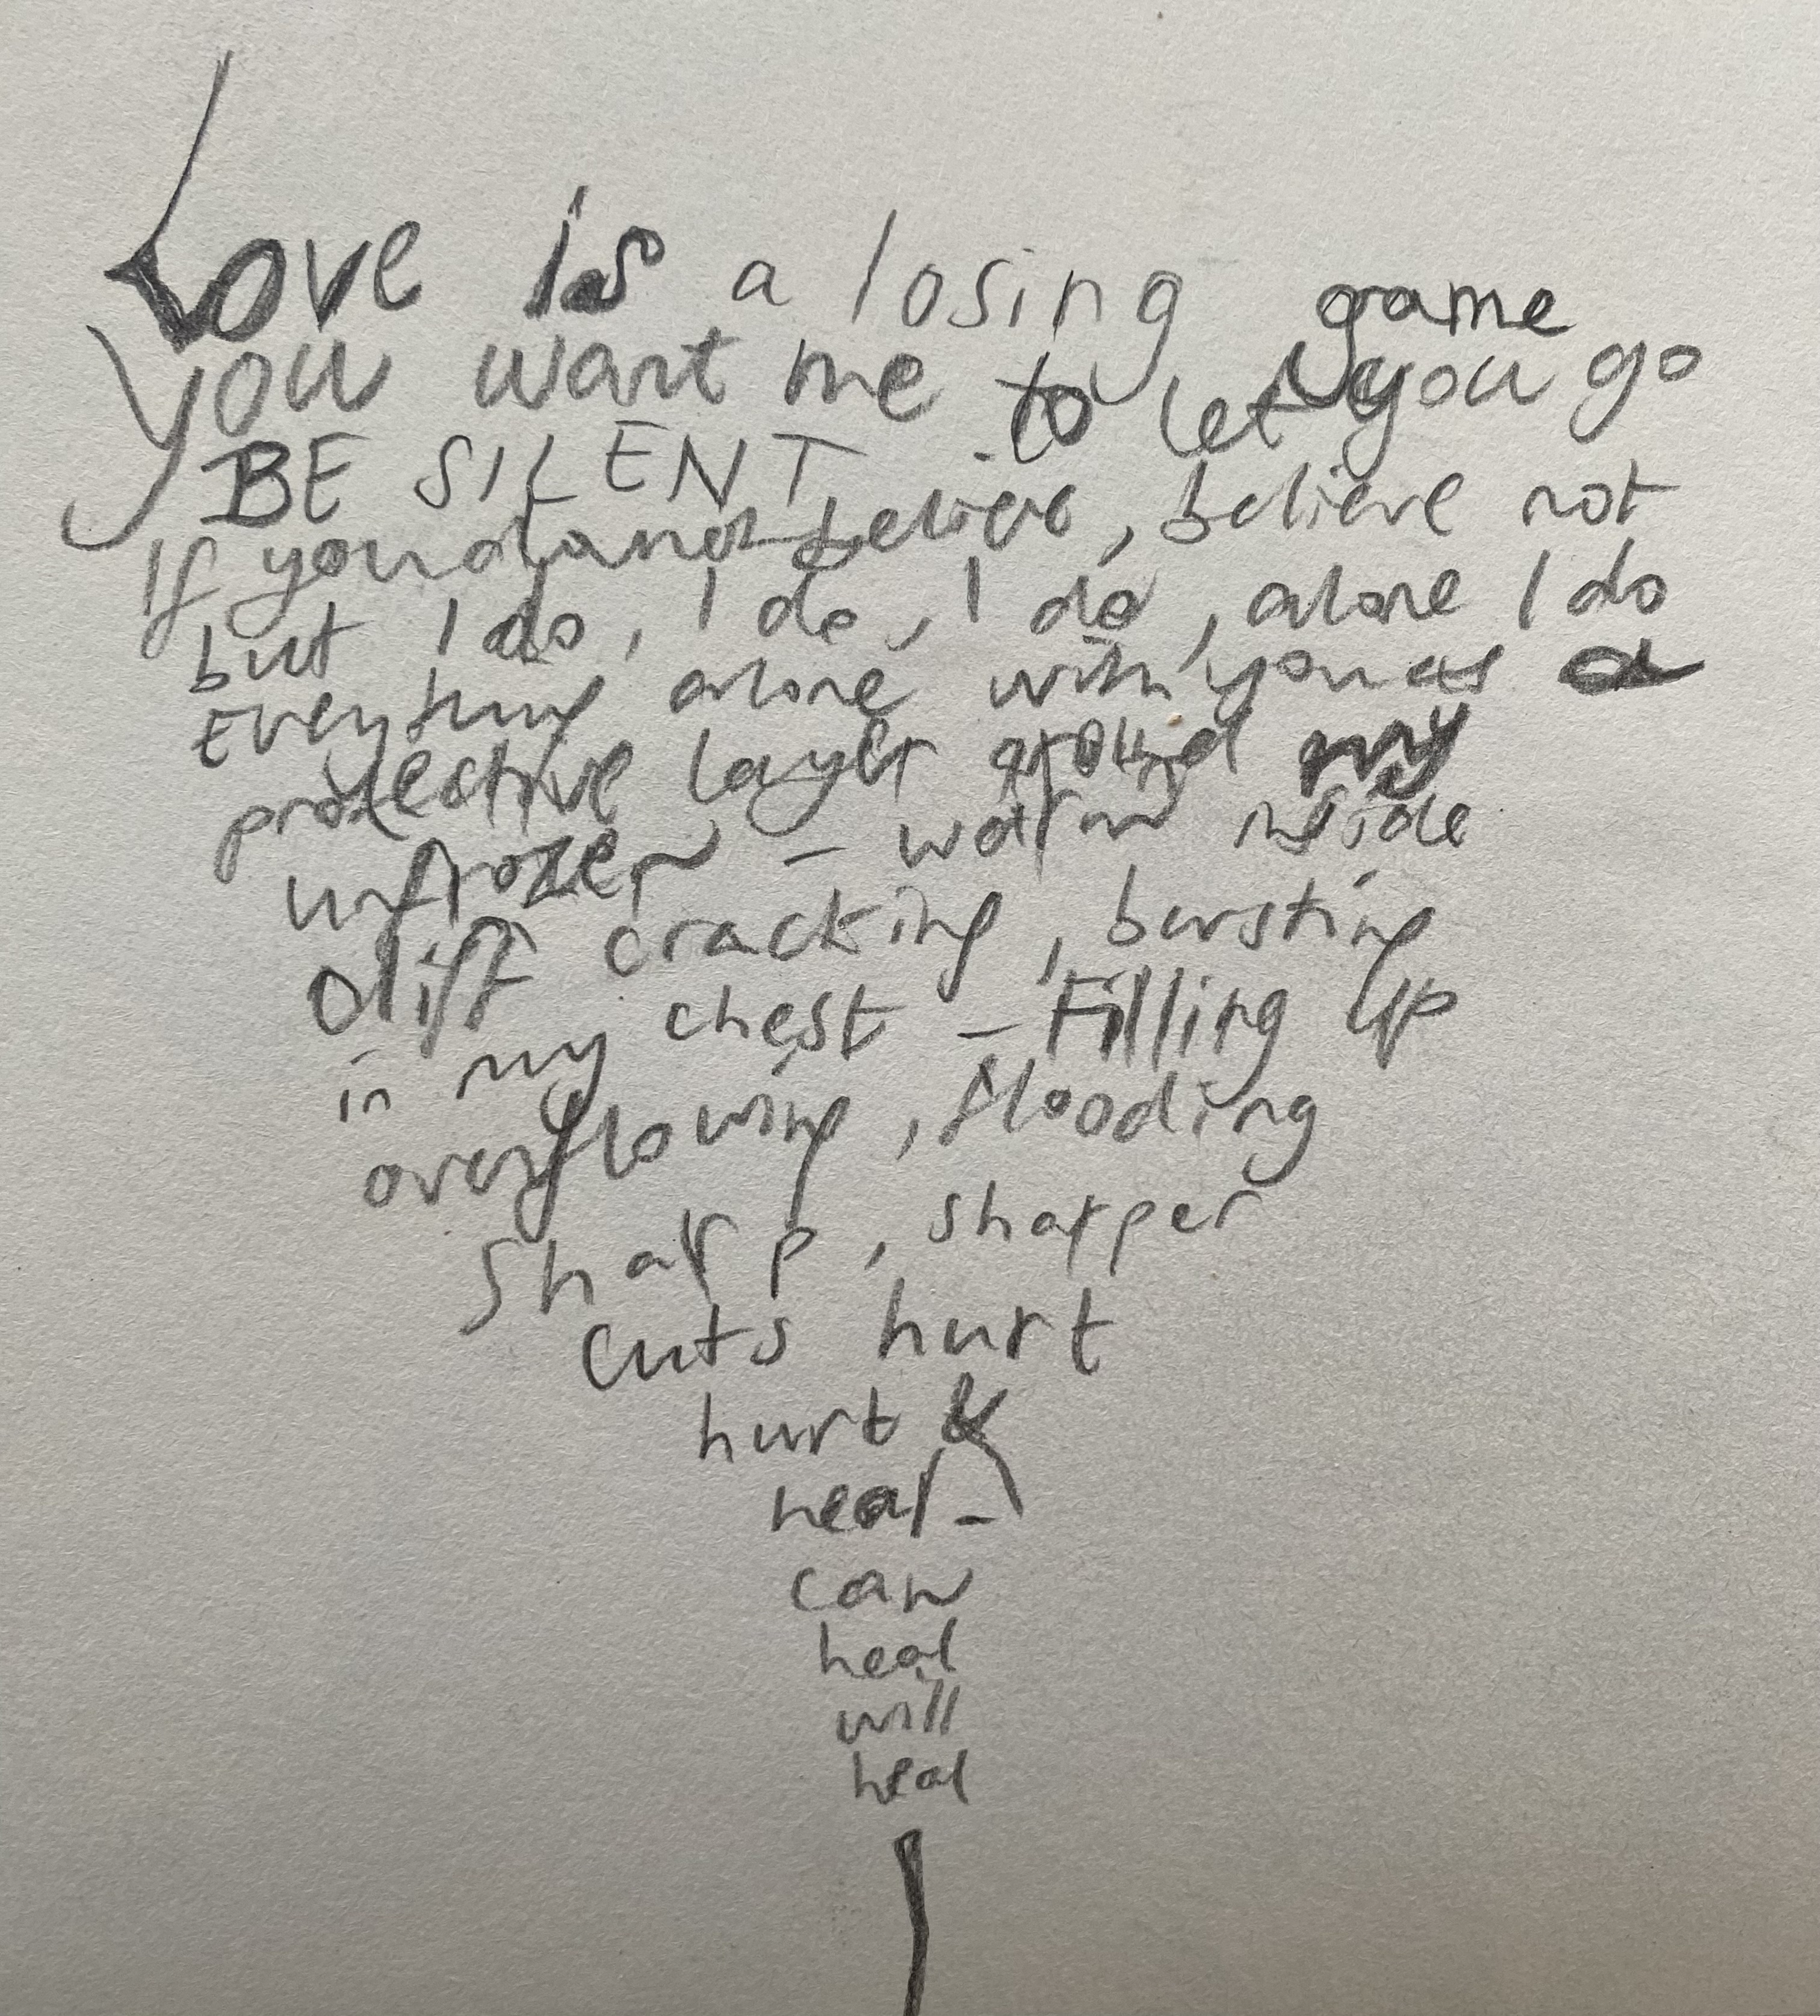 Love is a losing game
you want me to let you go
BE SILENT
If you do not believe, believe not
but I do, I do, I do, alone I do
Everything alone with you as a
protective layer around my
unfrozen – warm inside
cliff cracking, bursting
in my chest – Filling up
overflowing, flooding
Sharp, sharper
cuts hurt
hurt &
heal –
can
heal
will
heal